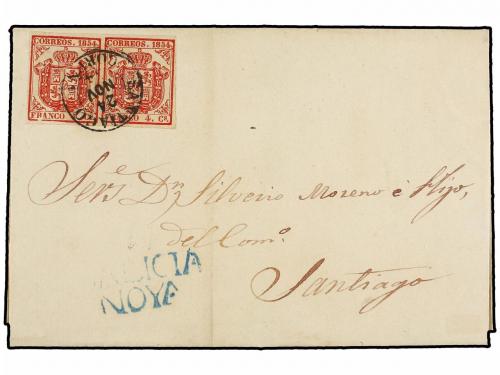 CORREOS. 1854. CORREOS. 1854.
FRANCO 4. Cs.
SANTIAGO
24
NOV
Sres. Dn. Silverio Moreno é Hijo,
del Como.
GALICIA
NOYA
Santiago